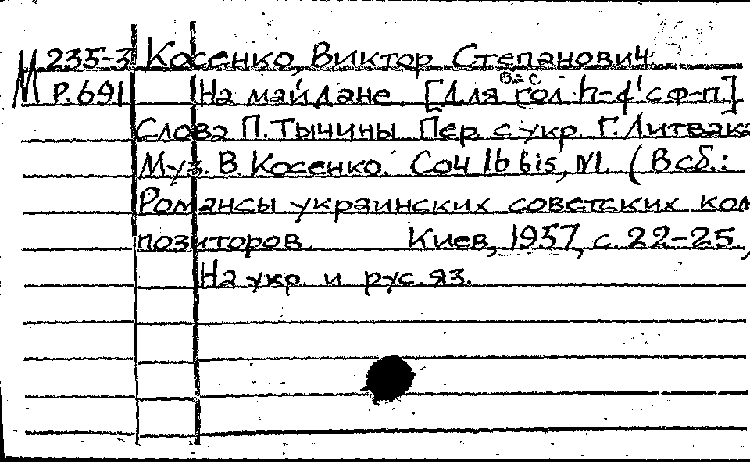 М 235-3 Косенко, Виктор Степанович
Р.691 На майдане. [Для гол. h-d' с ф-п.]
бас
Слова П. Тычины. Пер. с укр. Г. Литвака
Муз. В. Косенко. Соч 16 bis, N1. (В сб.:
Романсы украинских советских ком
позиторов. Киев, 1957, с. 22-25,
На укр. и рус. яз.